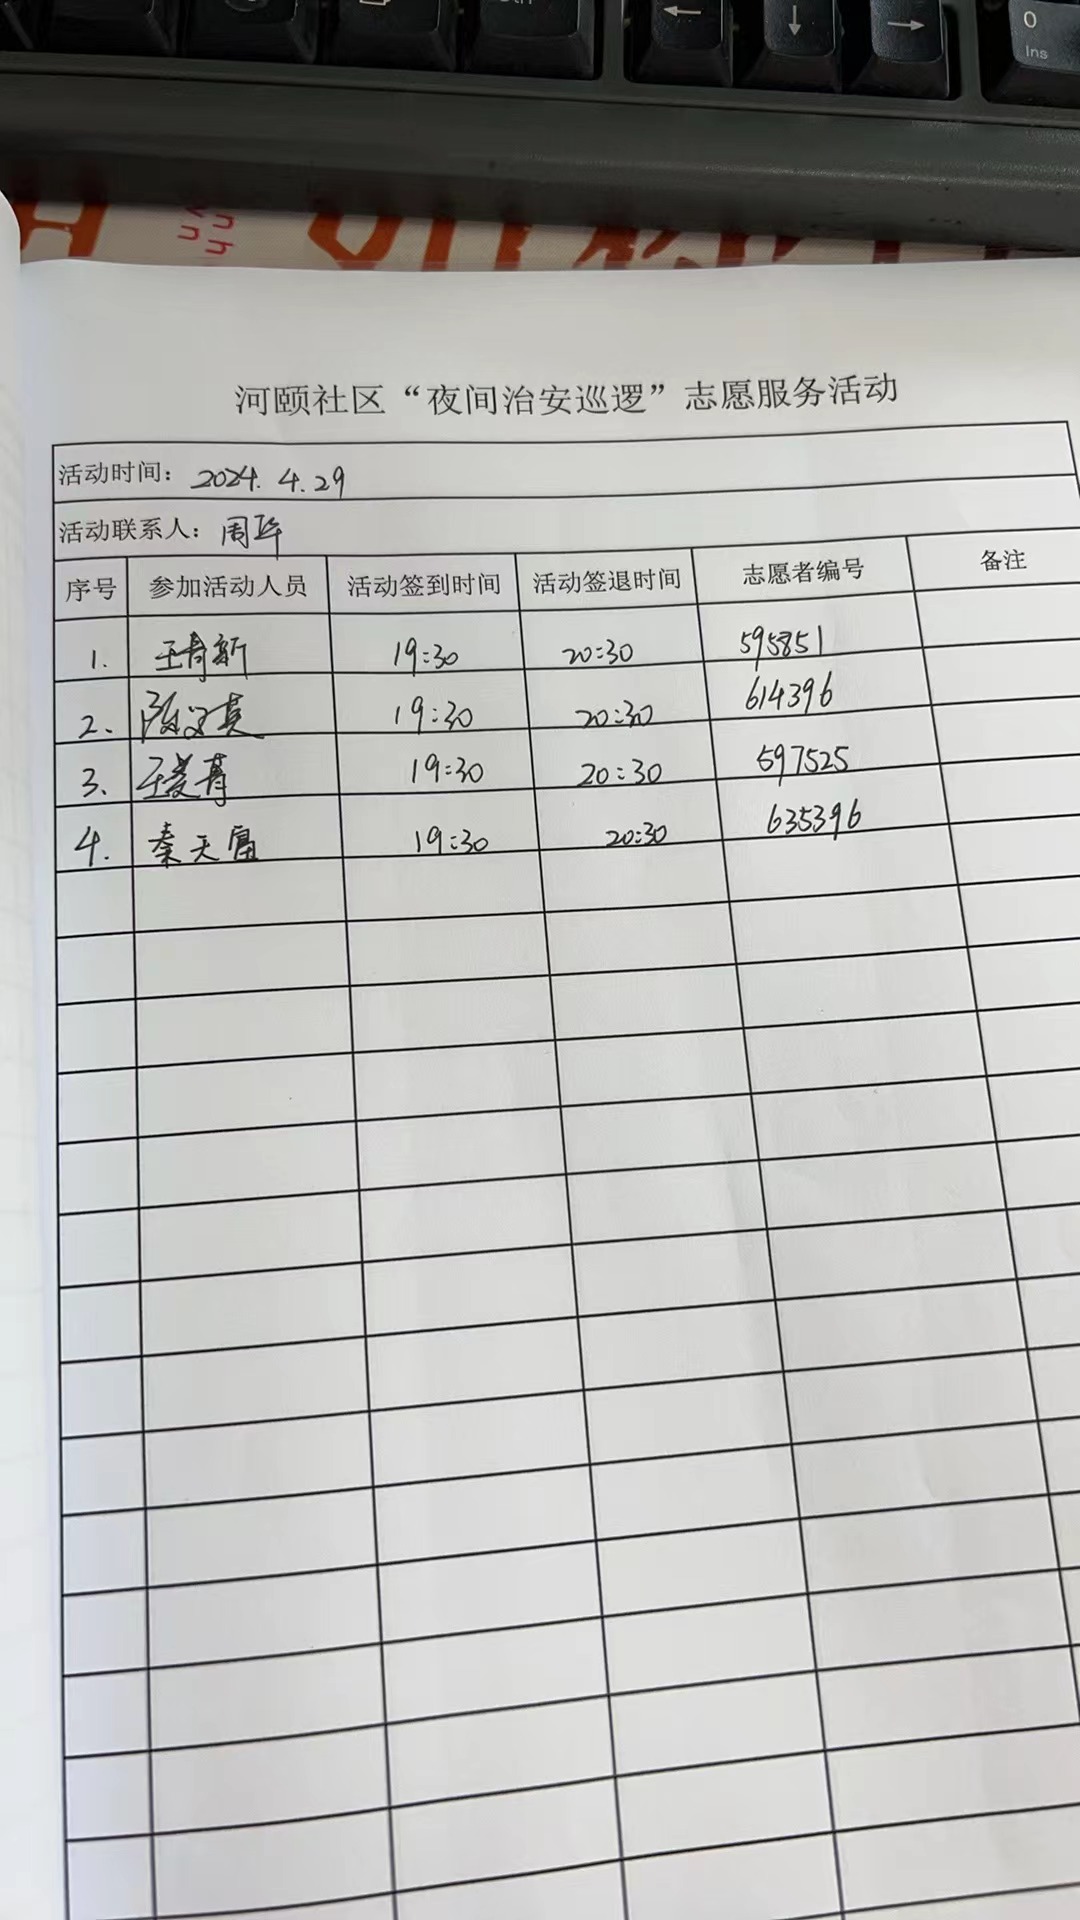 0
Ins
河颐社区“夜间治安巡逻”志愿服务活动
活动时间：2024.4.29
活动联系人：周华
序号 参加活动人员 活动签到时间 活动签退时间 志愿者编号 备注
1. 王奇新 19:30 20:30 595851
2、 陈文英 19:30 20:30 614396
3、 王菱菁 19:30 20:30 597525
4. 秦天富 19:30 20:30 635396